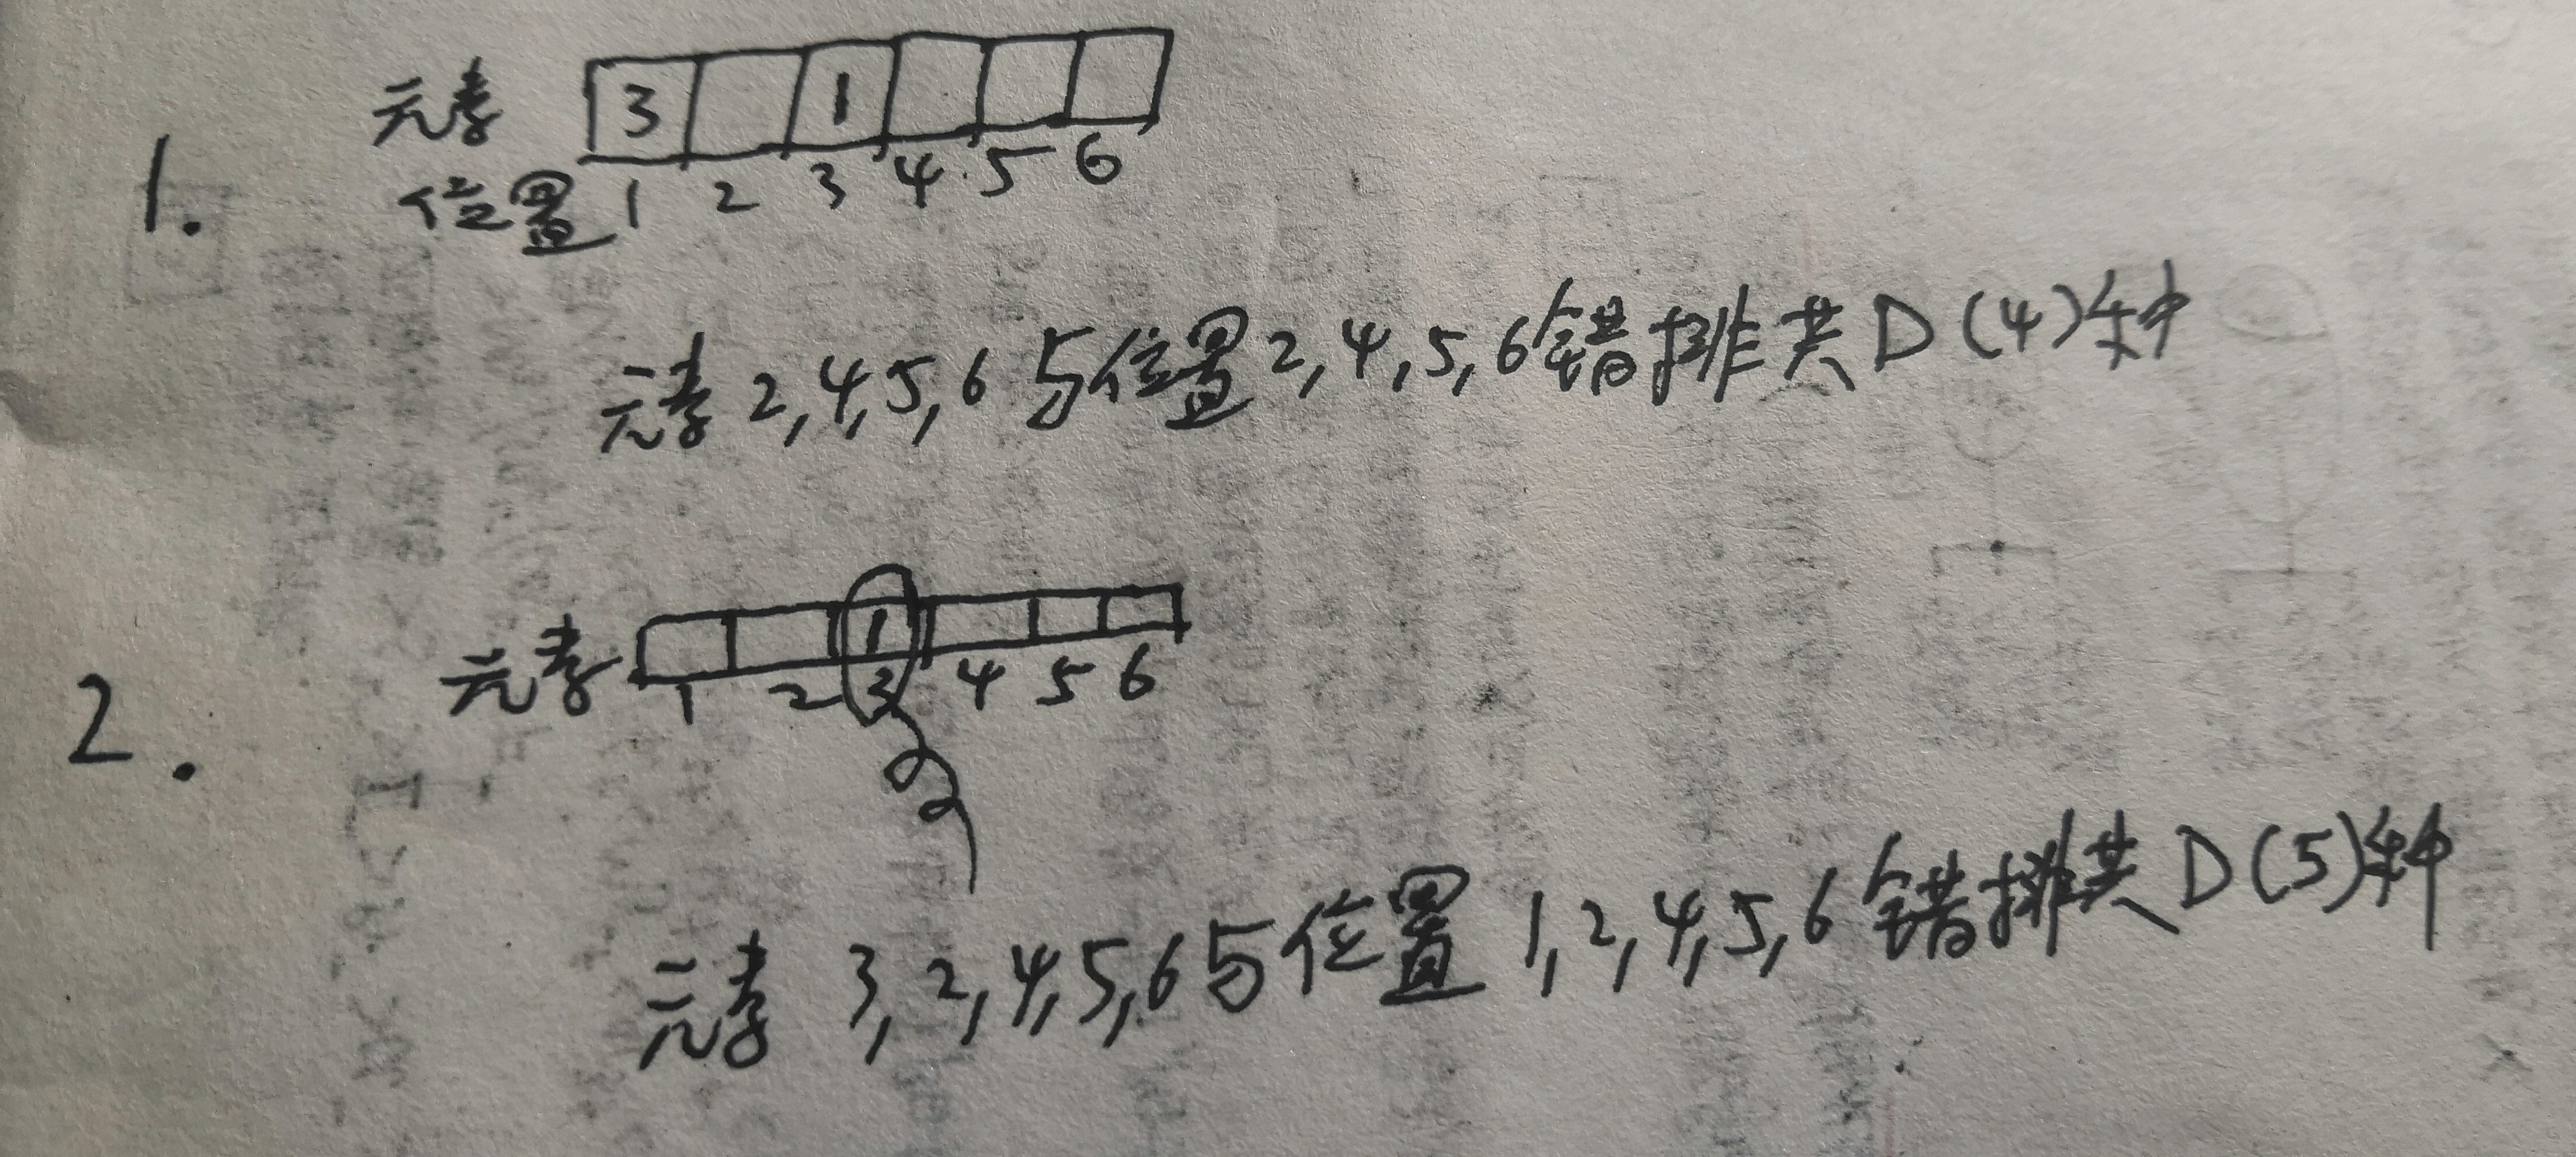 元素 3 1
1.
位置 1 2 3 4 5 6
元素 2,4,5,6 与位置 2,4,5,6 错排共 D(4)种
元素 1
2. 1 2 3 4 5 6
元素 3,2,4,5,6 与位置 1,2,4,5,6 错排共 D(5)种